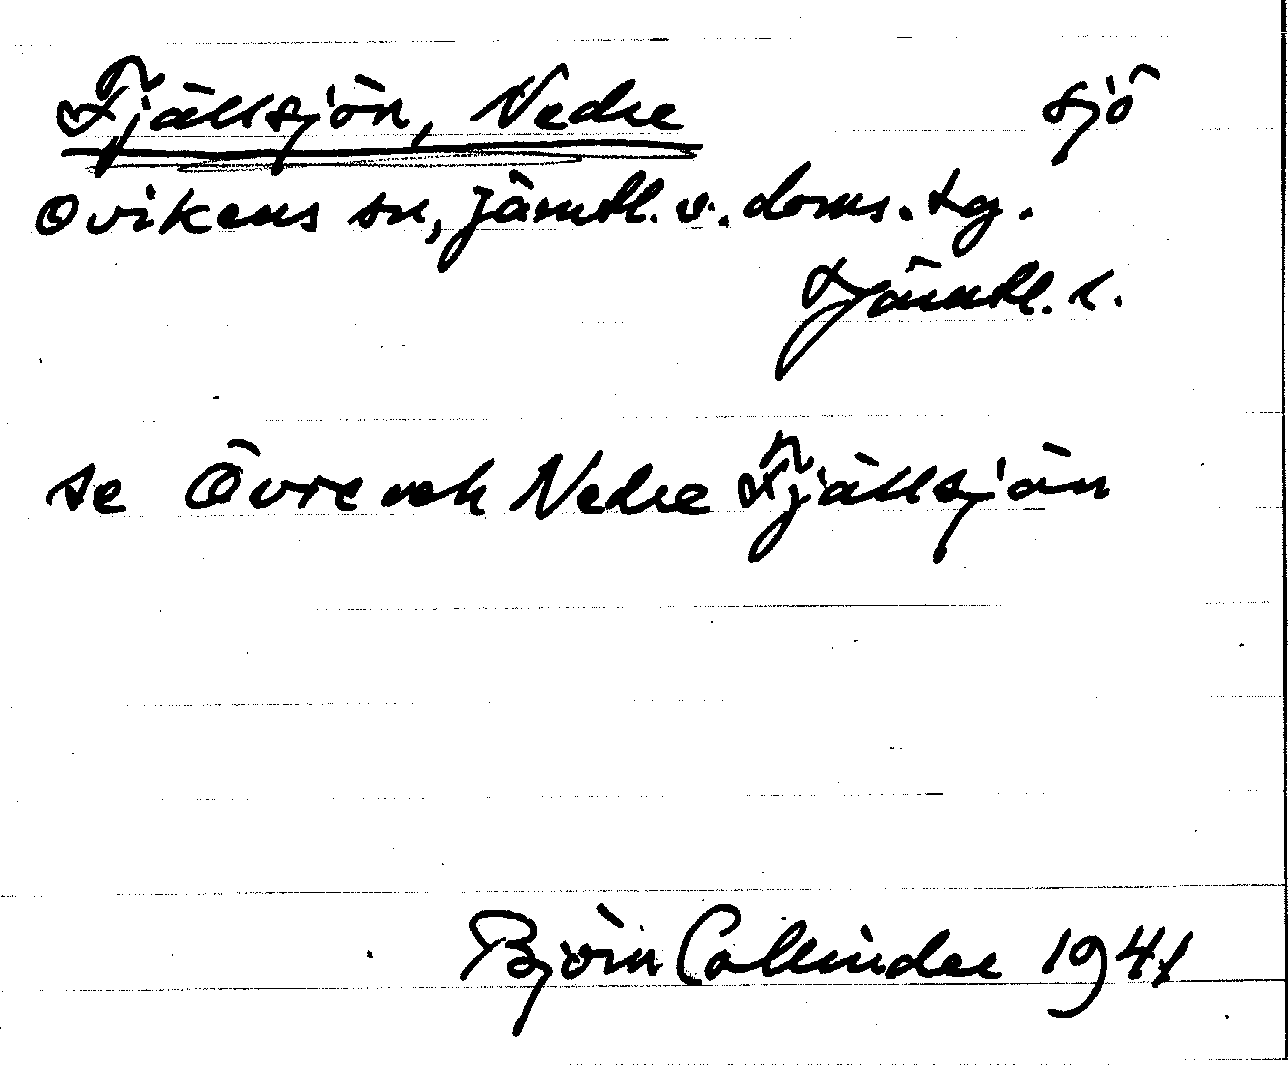 Fjällsjön, Nedre sjö
Ovikens sn, Jämtl. v. doms. tg.
Jämtl. l.
se Övre och Nedre Fjällsjön
Björn Collinder 1941